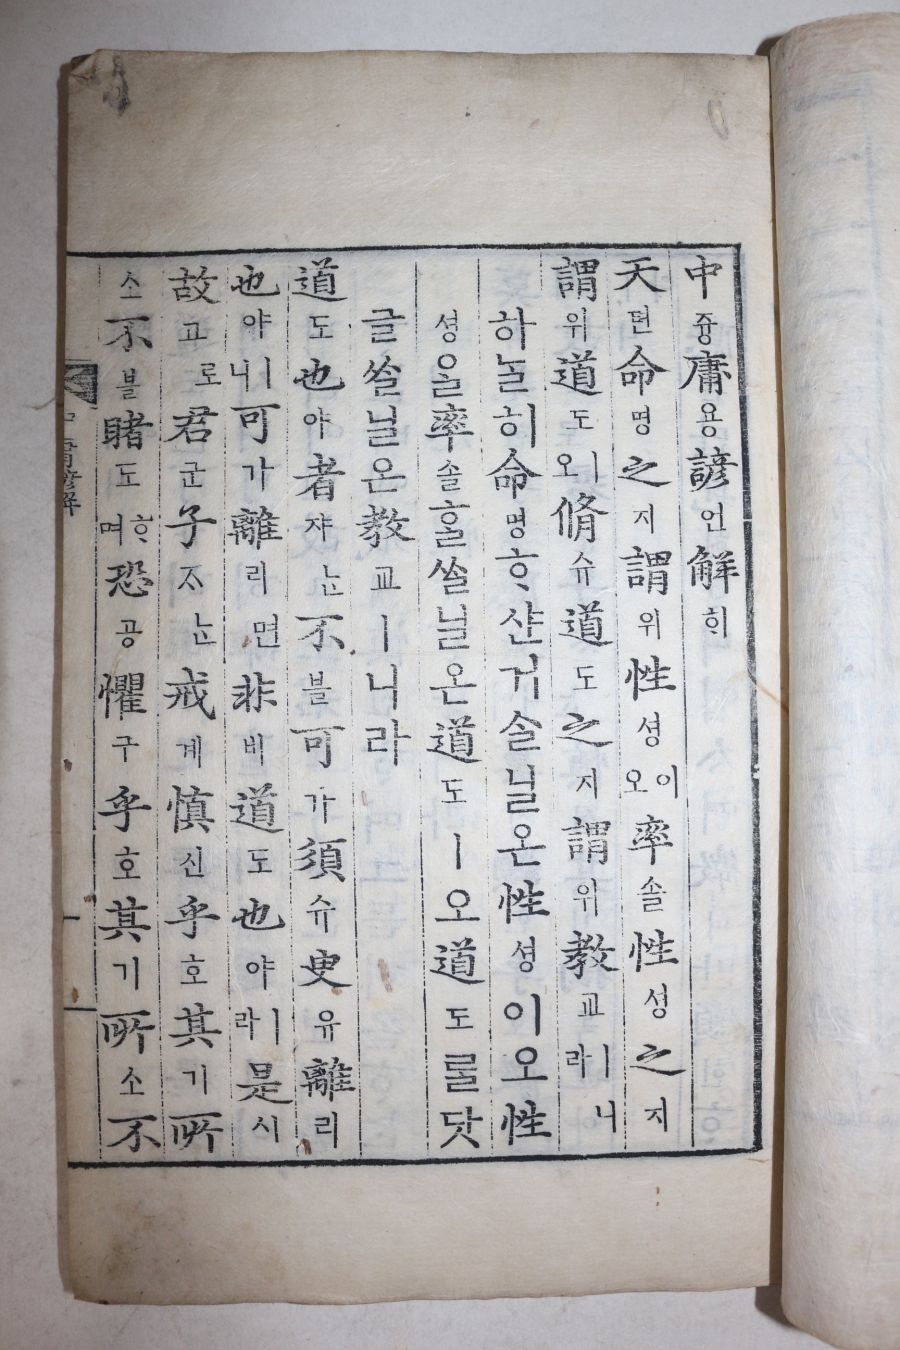 中듕庸용諺언解ᄒᆡ
天텬命명之지謂위性셩이오率솔性셩之지
謂위道도ㅣ오脩슈道도之지謂위教교ㅣ라니
하ᄂᆞᆯ히命명ᄒᆞ샨거ᄉᆞᆯ닐온性셩이오性
셩을率솔홀ᄊᆞᆯ닐온道도ㅣ오道도ᄅᆞᆯ닷
글ᄊᆞᆯ닐온教교ㅣ니라
道도也야者쟈ᄂᆞᆫ不블可가須슈臾유離리
也야ㅣ니可가離리면非비道도也야ㅣ라是시
故고로君군子ᄌᆞᄂᆞᆫ戒계慎신乎호其기所
소不블睹도ᄒᆞ며恐공懼구乎호其기所소不
中庸諺解